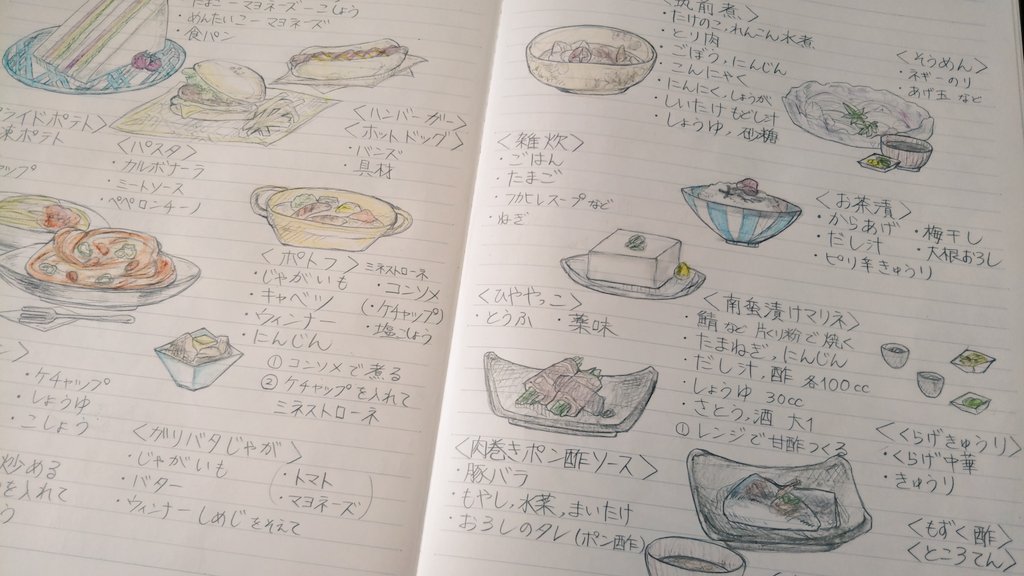 たまごーマヨネーズーこしょう
めんたいこーマヨネーズ
・食パン
〈ハンバーガー〉
〈ホットドッグ〉
・バンズ
・具材
ライドポテト〉
ポテト
〈パスタ〉
・カルボナーラ
・ミートソース
・ペペロンチーノ
ャップ
〈ポトフ〉
・じゃがいも
・キャベツ
・ウィンナー
・にんじん
ミネストローネ
・コンソメ
(・ケチャップ)
・塩こしょう
①コンソメで煮る
②ケチャップを入れて
ミネストローネ
・ケチャップ
・しょうゆ
・こしょう
炒める
を入れて
〈がりバタじゃが〉
・じゃがいも
・バター
・ウィンナーしめじをそえて
(・トマト
・マヨネーズ)
筑前煮〉
・たけのこ、れんこん水煮
・とり肉
・ごぼう、にんじん
・こんにゃく
・にんにく、しょうが
・しいたけもどし汁
・しょうゆ、砂糖
〈そうめん〉
・ネギーのり
あげ玉など
〈雑炊〉
・ごはん
・たまご
・フカヒレスープなど
・ねぎ
〈お茶漬〉
・からあげ
・だし汁
・ピリ辛きゅうり
・梅干し
・大根おろし
〈ひややっこ〉
・とうふ ・薬味
〈南蛮漬けマリネ〉
・鯖など片くり粉で焼く
・たまねぎ、にんじん
・だし汁、酢 各100cc
・しょうゆ 30cc
・さとう、酒 大1
①レンジで甘酢つくる
〈肉巻きポン酢ソース〉
・豚バラ
・もやし、水菜、まいたけ
・おろしのタレ(ポン酢)
〈くらげきゅうり〉
・くらげ中華
・きゅうり
〈もずく酢〉
〈ところてん〉